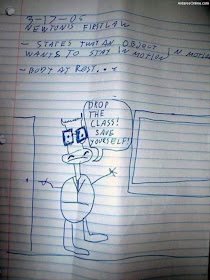 3-17-05
NEWTONS FIRST LAW
- STATES THAT AN OBJECT IN MOTION
WANTS TO STAY IN MOTION
- BODY AT REST...
DROP
THE
CLASS!
SAVE
YOURSELF!